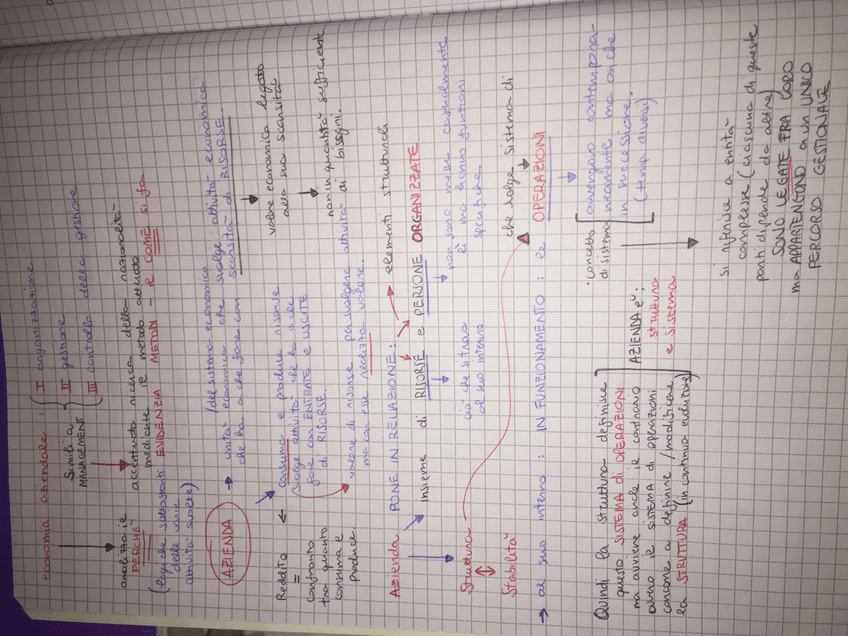 Economia aziendale : I organizzazione
II gestione
III controllo della gestione
Simili a
MANAGEMENT
analizza il
PERCHÉ
(logiche sottostanti
delle varie
attività svolte)
accentuata ricerca della razionalità
mediante il metodo attuato
EVIDENZIA METODI - il COME si fa
AZIENDA → unità economica (del sistema economico)
che svolge attività economica
che ha a che fare con scarsità di RISORSE.
valore economico legato
alla sua scarsità
non in quantità sufficiente
di bisogni.
consuma e produce risorse
svolge attività che ha a che
fare con ENTRATE e USCITE
di RISORSE.
Reddito
=
confronto
tra quanto
consuma e
produce.
valore di risorse per svolgere attività
ma con esse realizza valore.
Azienda PONE IN RELAZIONE : elementi strutturali
insieme di RISORSE e PERSONE ORGANIZZATE
ciò che si trova
al suo interno
non sono messe casualmente
lì ma hanno funzioni
specifiche.
Struttura
Stabilità
che svolge sistema di
→ al suo interno : IN FUNZIONAMENTO : le OPERAZIONI
• concetto
di sistema
avvengono contempora-
neamente ma anche
in successione.
(tempi diversi)
Quindi la struttura definisce
questo SISTEMA DI OPERAZIONI
ma avviene anche il contrario
ovvero il sistema di operazioni
concorre a definire/modificare
la STRUTTURA (in continua evoluzione)
AZIENDA è:
struttura
e sistema
si riferisce a entità
complesse (ciascuna di queste
parti dipende da altre)
SONO LEGATE FRA LORO
ma APPARTENGONO a un UNICO
PERCORSO GESTIONALE